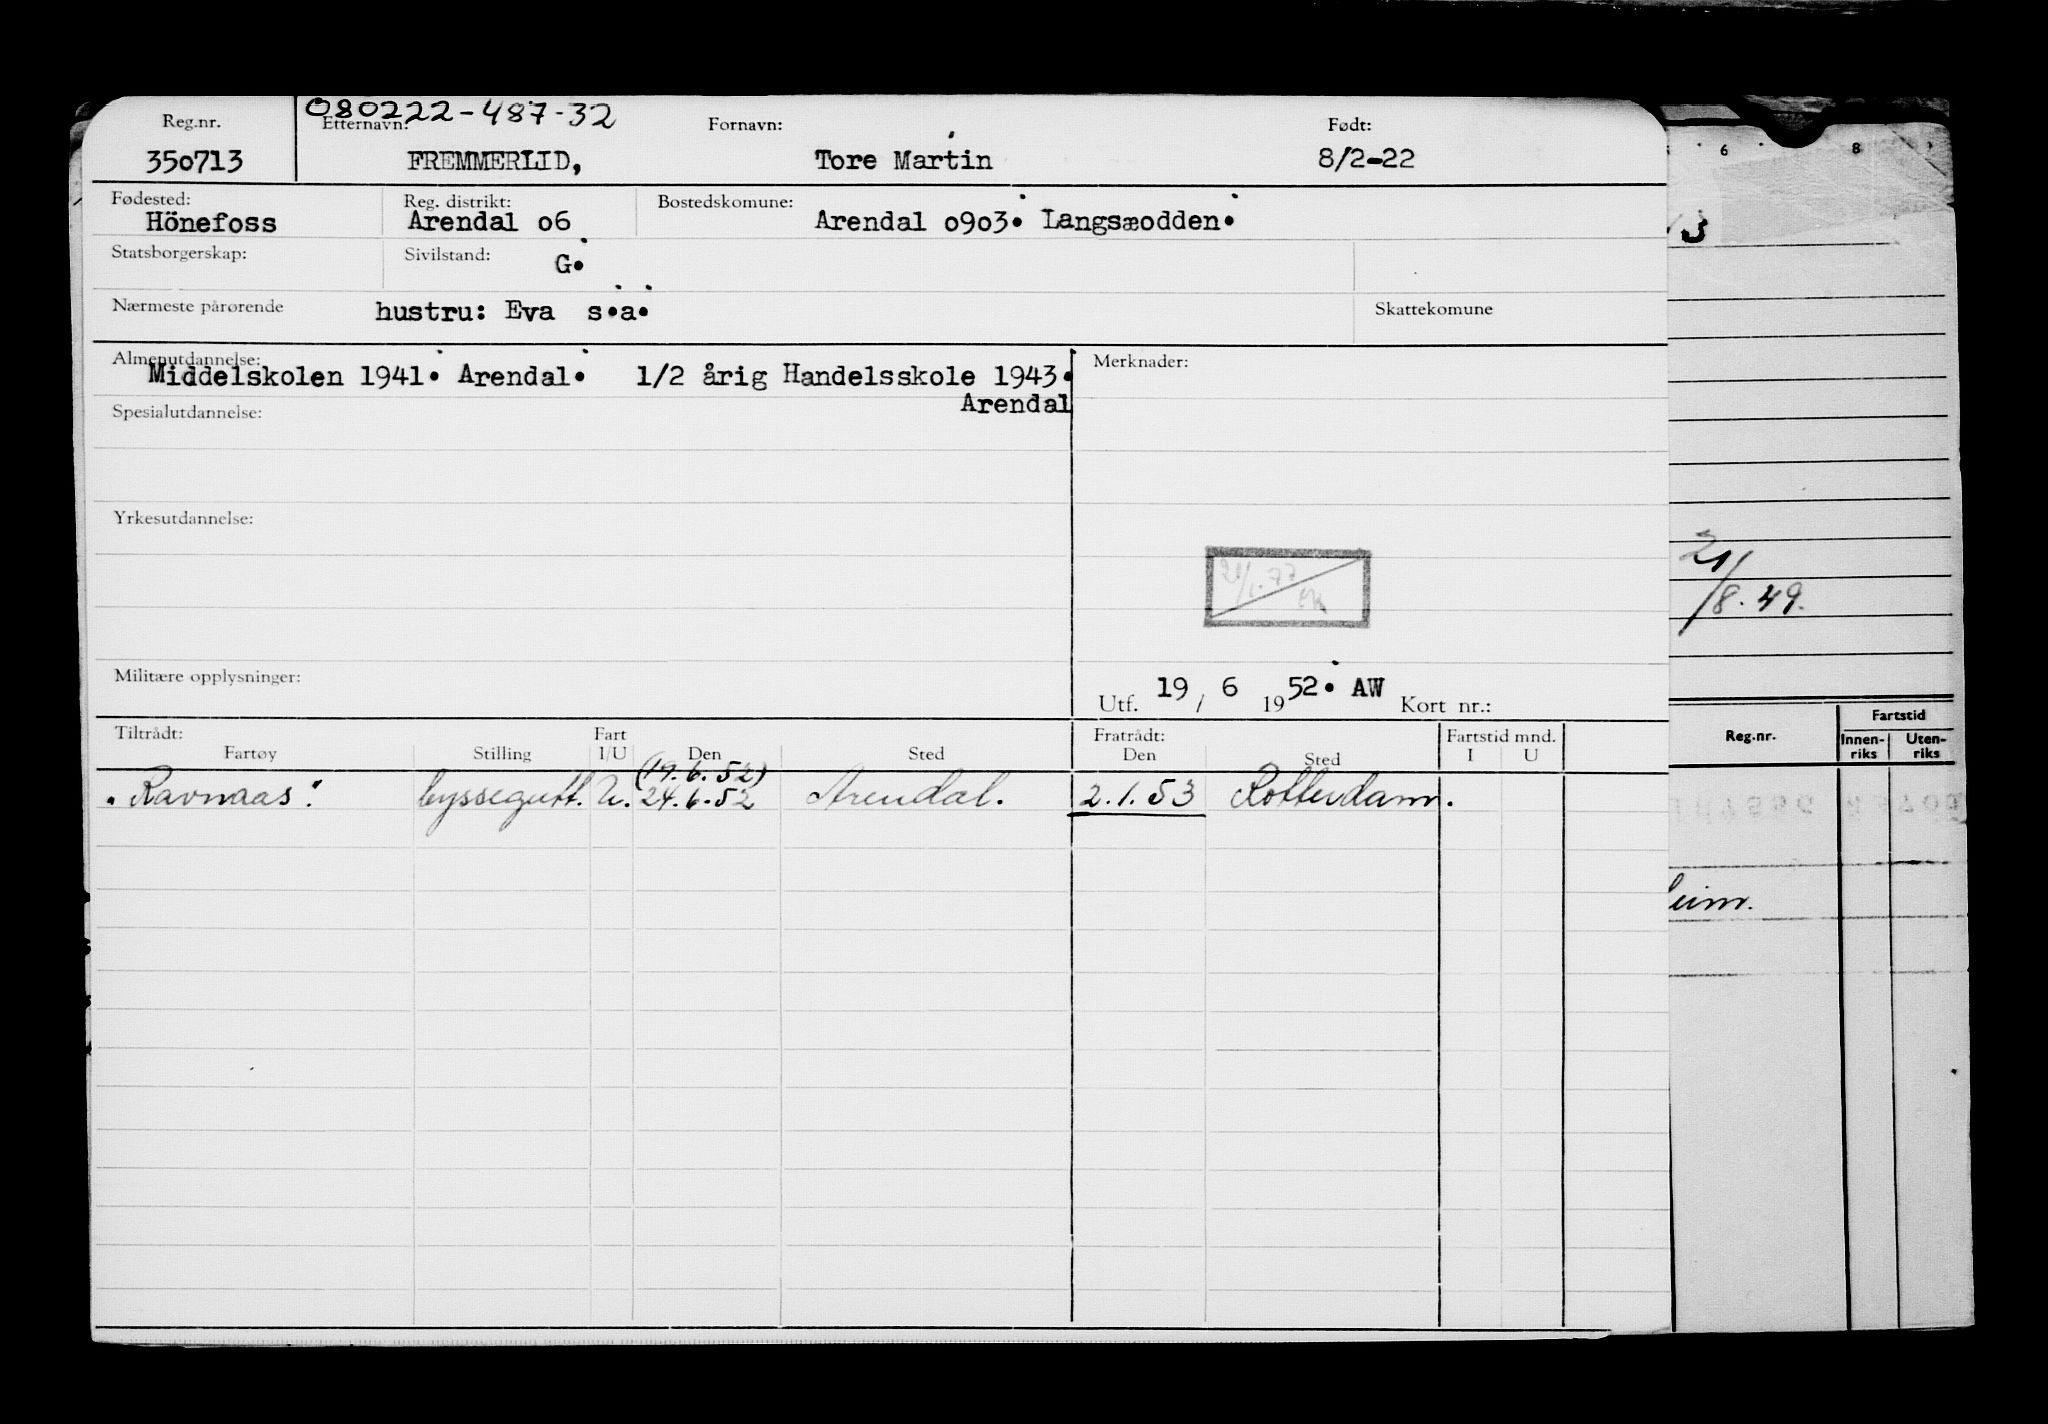 080222-487-32
Reg.nr. Etternavn: Fornavn: Født:
350713 FREMMERLID, Tore Martin 8/2-22
Fødested: Reg. distrikt: Bostedskomune:
Hönefoss Arendal o6 Arendal o9o3. Langsæodden.
Statsborgerskap: Sivilstand: G.
Nærmeste pårørende hustru: Eva s.a. Skattekomune
Almenutdannelse: Merknader:
Middelskolen 1941. Arendal. 1/2 årig Handelsskole 1943.
Arendal
Spesialutdannelse:
Yrkesutdannelse:
21/1.77
Militære opplysninger:
Utf. 19 / 6 1952. AW Kort nr.:
Tiltrådt: Fart Fratrådt: Fartstid mnd.
Fartøy Stilling I/U Den Sted Den Sted I U
(19.6.52)
"Ravnaas". byssegutt. U. 24.6.52 Arendal. 2.1.53 Rotterdam.
6 8
3
21/8.49.
Reg.nr. Fartstid
Innen-riks Uten-riks
eim.